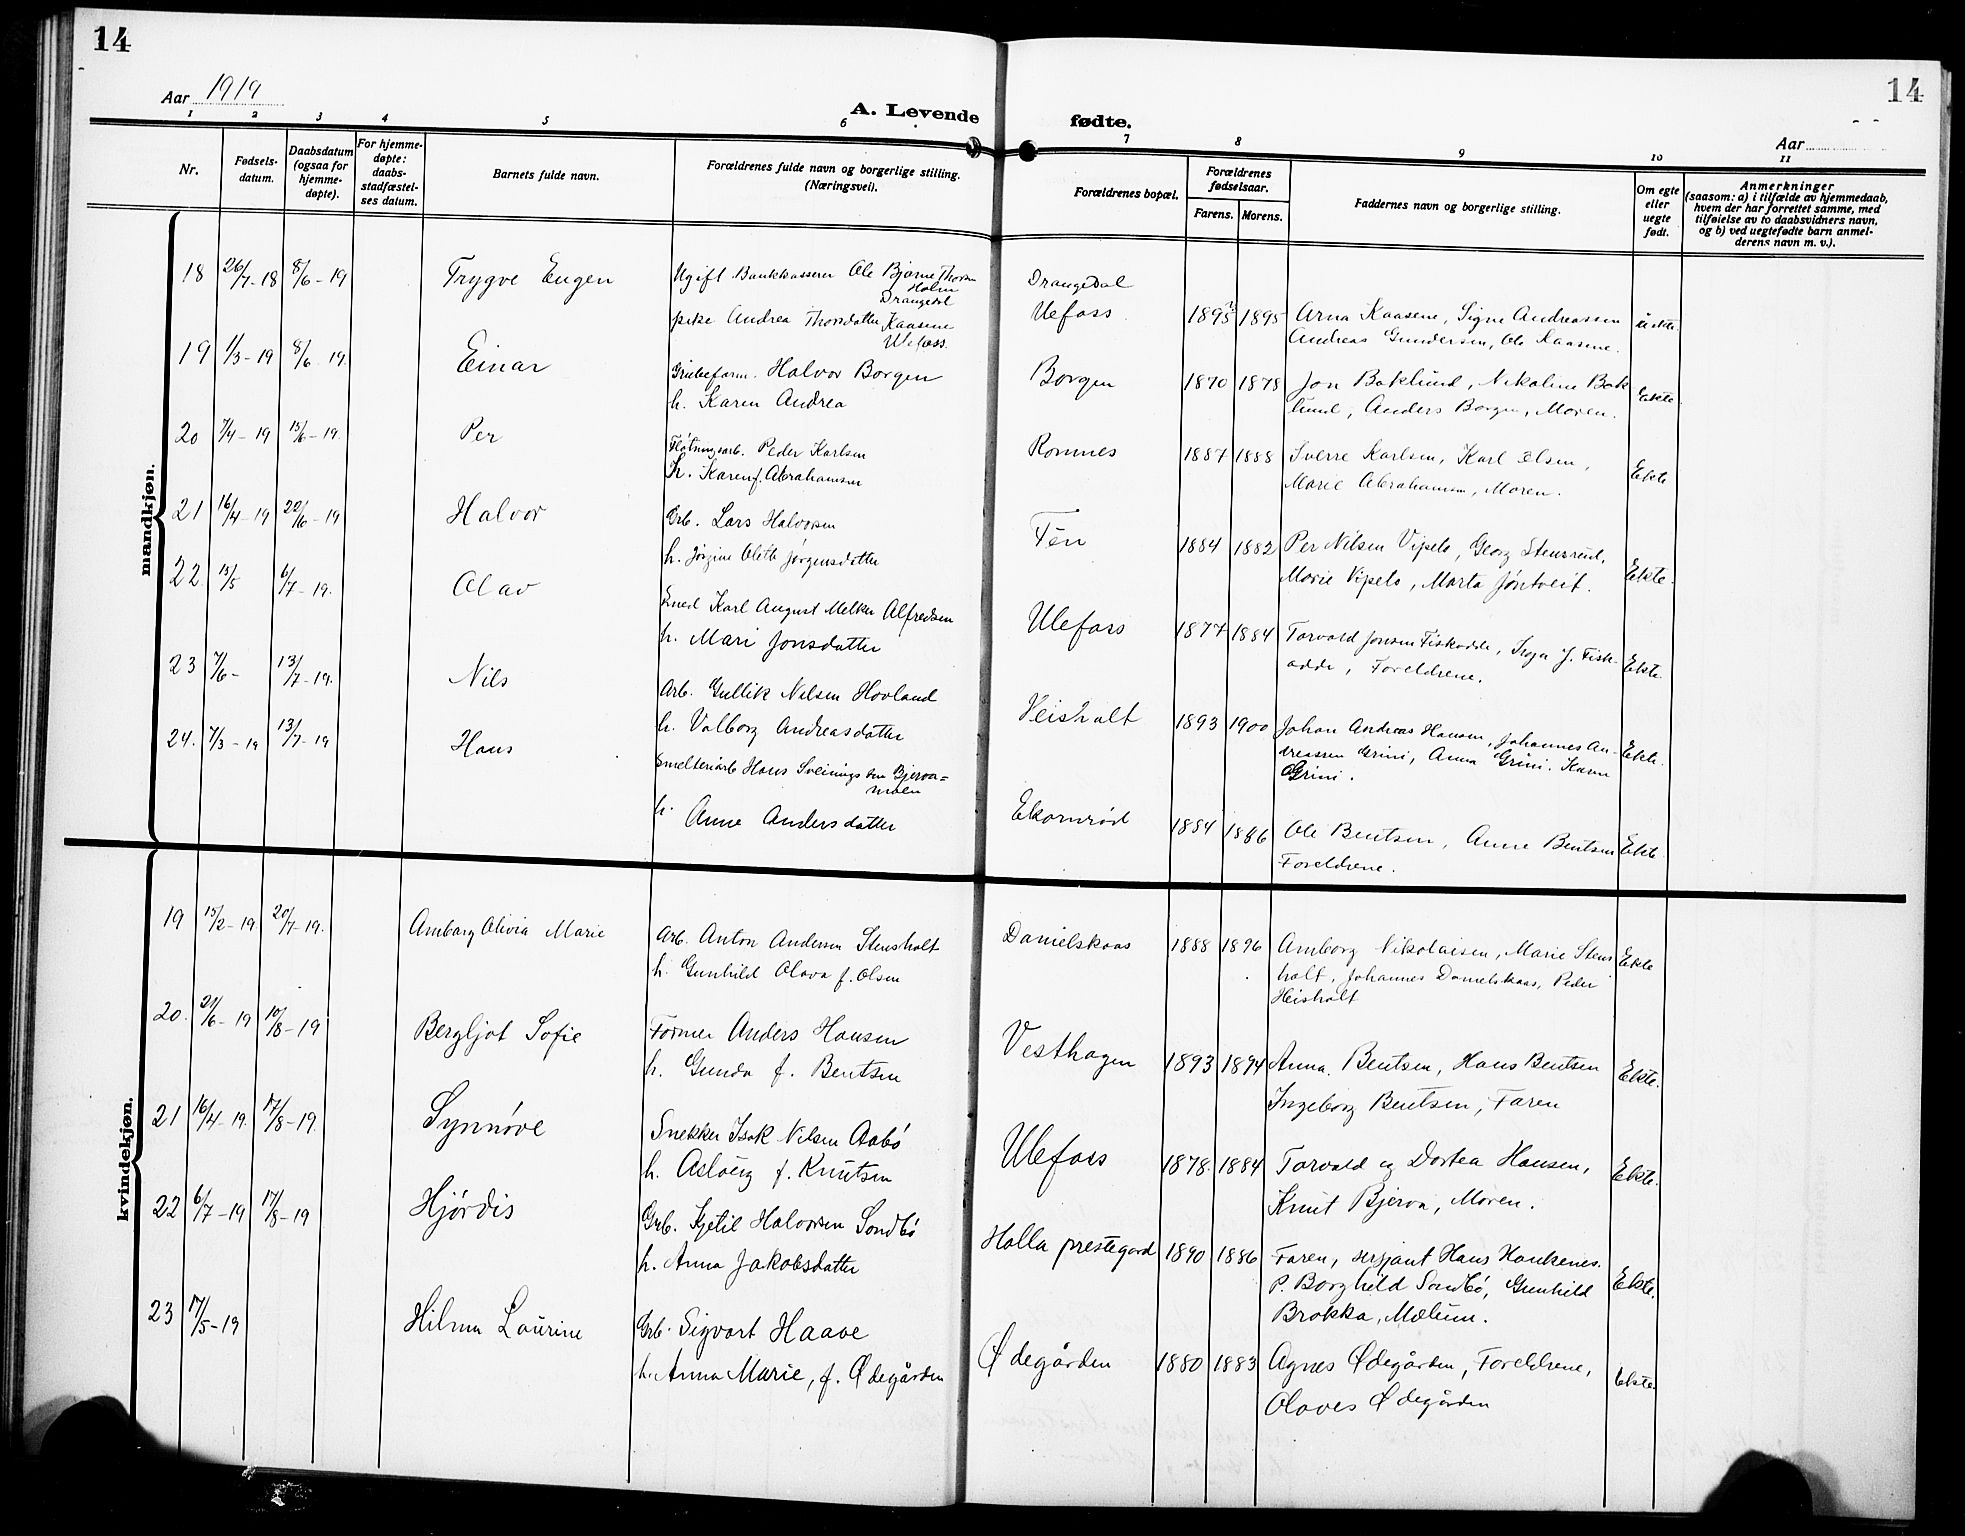 14
14
Aar 1919
A. Levende fødte.
Aar
1 2 3 4 5 6 7 8 9 10 11
Nr.
Fødsels-
datum.
Daabsdatum
(ogsaa for
hjemme-
døpte).
For hjemme-
døpte:
daabs-
stadfæstel-
ses datum.
Barnets fulde navn.
Forældrenes fulde navn og borgerlige stilling.
(Næringsvei).
Forældrenes bopæl.
Forældrenes
fødselsaar.
Farens. Morens.
Faddernes navn og borgerlige stilling.
Om egte
eller
uegte
født.
Anmerkninger
(saasom: a) i tilfælde av hjemmedaab,
hvem der har forrettet samme, med
tilføielse av to daabsvidners navn,
og b) ved uegtefødte barn anmel-
derens navn m. v.).
mandkjøn.
18 26/7-18 8/6-19 Trygve Eugen Ugift Bankkasserer Ole Bjarne Thorsen
Holm
Drangedal
Drangedal
pike Andrea Thorsdatter Kaasene
Ulefoss.
Ulefoss 1895 1895 Arna Kaasene, Signe Andreassen
Andreas Gundersen, Ole Kaasene.
19 1/3-19 8/6-19. Einar Grubeform. Halvor Borgen
h. Karen Andrea
Borgen 1870 1878 Jon Baklund, Nikoline Bak
lund, Anders Borgen, Moren. Ekte
20 7/4-19 15/6-19. Per Fløtningsarb. Peder Karlsen
h. Karen f. Abrahamsen
Romnes 1887 1888 Sverre Karlsen, Karl Olsen,
Marie Abrahamsen, Moren. Ekte
21 16/4-19 22/6-19 Halvor Grb. Lars Halvorsen
h. Jørgine Oleth Jørgensdatter
Fen 1884 1882 Per Nilsen Vipeto, Georg Stensrud,
Marie Vipeto, Marta Jøntveit. Ekte.
22. 13/5 6/7-19. Olav Smed Karl August Melker Alfredsen
h. Mari Jonsdatter
Ulefoss 1877 1884 Torvald Jonsen Fiskodde, Inga J. Fisk-
odde, Foreldrene. Ekte.
23 7/6- 13/7-19. Nils Arb. Gullik Nilsen Hovland
h. Valborg Andreasdatter
Heisholt 1893 1900 Johan Andreas Hansen, Johannes An-
dreassen Grini, Anna Grini. Karen
Grini. Ekte.
24. 7/3-19 13/7-19 Hans Smelteriarb Hans Sveinungsen Bjervа=
moen
h. Anne Andersdatter
Ekornrød 1884 1886 Ole Bentsen, Anne Bentsen
Foreldrene. Ekte.
kvindekjøn.
19 15/2-19. 20/7-19. Amborg Olivia Marie Arb. Anton Andersen Stensholt
h. Gunhild Olava f. Olsen
Danielskaas 1888 1896 Amborg Nikolaisen, Marie Stens
holt, Johannes Danielskaas, Peder
Heisholt Ekte
20. 21/6-19 10/8-19 Bergljot Sofie Former Anders Hansen
h. Gunda f. Bentsen
Vesthagen 1893 1894 Anna. Bentsen, Hans Bentsen
Ingeborg Bentsen, Faren Ekte.
21 16/4-19. 17/8-19. Synnøve Snekker Isak Nilsen Aabø
h. Aslaug f. Knutsen
Ulefoss 1878. 1884 Torvald og Dortea Hansen,
Knut Bjerva, Moren. Ekte.
22 6/7-19 17/8-19 Hjørdis Grb. Kjetil Halvorsen Sondbø
h. Anna Jakobsdatter
Holla prestegard 1890 1886 Faren, sersjant Hans Haukenes.
P. Borghild Sondbø, Gunhild
Brokka, Mælum. Ekte.
23 17/5-19 Hilma Laurine Grb. Sigvart Haave
h. Anna Marie, f. Ødegården
Ødegården 1880 1883 Agnes Ødegården, Foreldrene,
Olaves Ødegården Ekte.